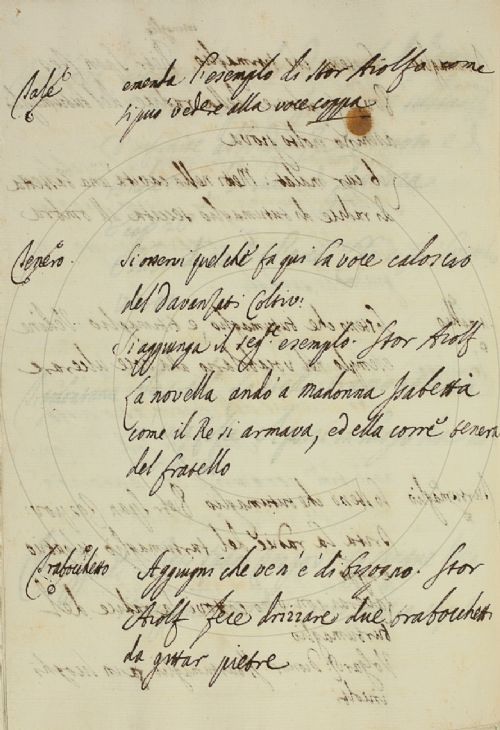 emenda l'esempio di Stor Aiolfo come
si può vedere alla voce coppa
Tenero. Si osservi quel che fa qui la voce caloscio
del Davanzati Coltiv:
Si aggiunga il seg.e esempio. Stor Aiolf
La novella andò a Madonna Isabetta
come il Re si armava, ed ella corre tenera
del fratello
Trabocchetto Aggiugni che ven'è di bisogno. Stor
Aiolf fece drizzare due trabocchetti
da gittar pietre